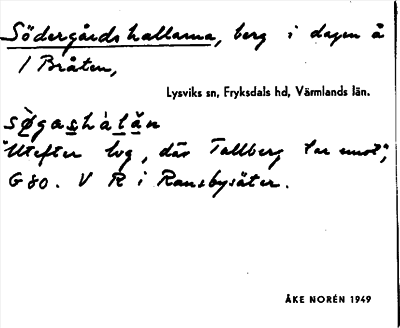 Södergårdshallarna, berg i dagen å
1 Bråten,
Lysviks sn, Fryksdals hd, Värmlands län.
søgashàlăn
"Utefter lvg, där Tallberg tar emot",
G 80. V R i Ransbysäter.
ÅKE NORÉN 1949